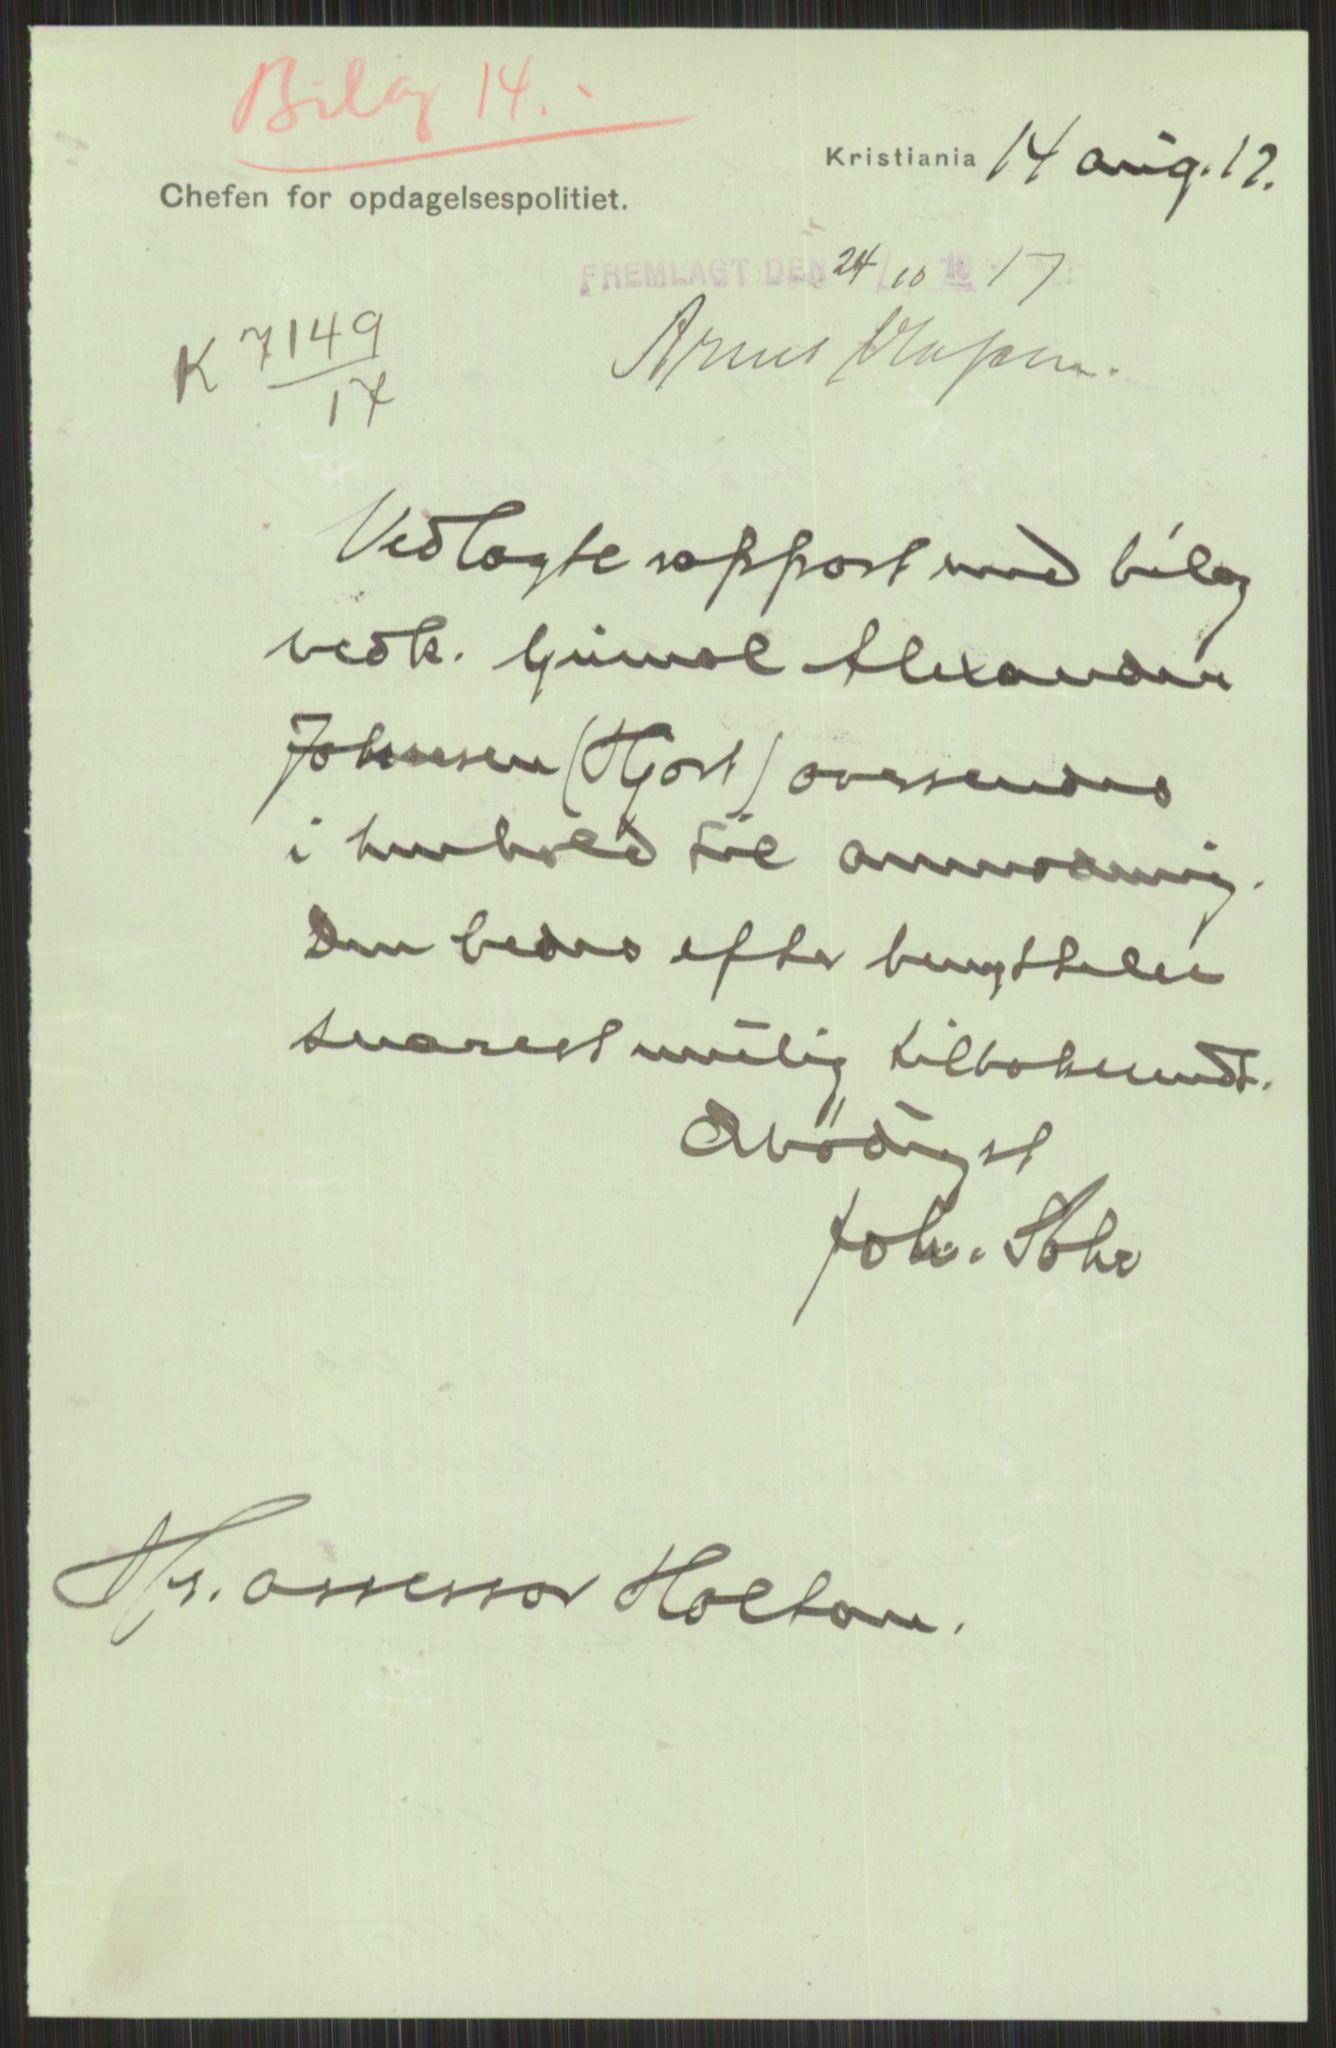 Bilag 14.-
Kristiania 14 aug. 17.
Chefen for opdagelsespolitiet.
FREMLAGT DEN 24/10 18 17
K 7149
17
Vedlagte rapport med bilag
vedk. Alexander
Johnsen (Hjort) oversendes
i henhold til anmodning.
Den bedes efter benyttelse
snarest mulig tilbakesendt.
Ærbödigst
Joh. Söhr
Hr. assessor Holtan.